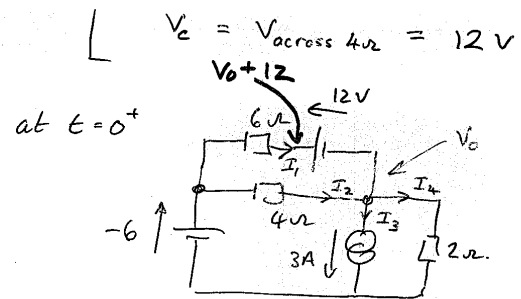 Vc = Vacross 4Ω = 12 V
Vo + 12
12V
at t = 0⁺
6Ω
I₁
Vo
I₂
I₄
4Ω
I₃
-6
3A
2Ω.